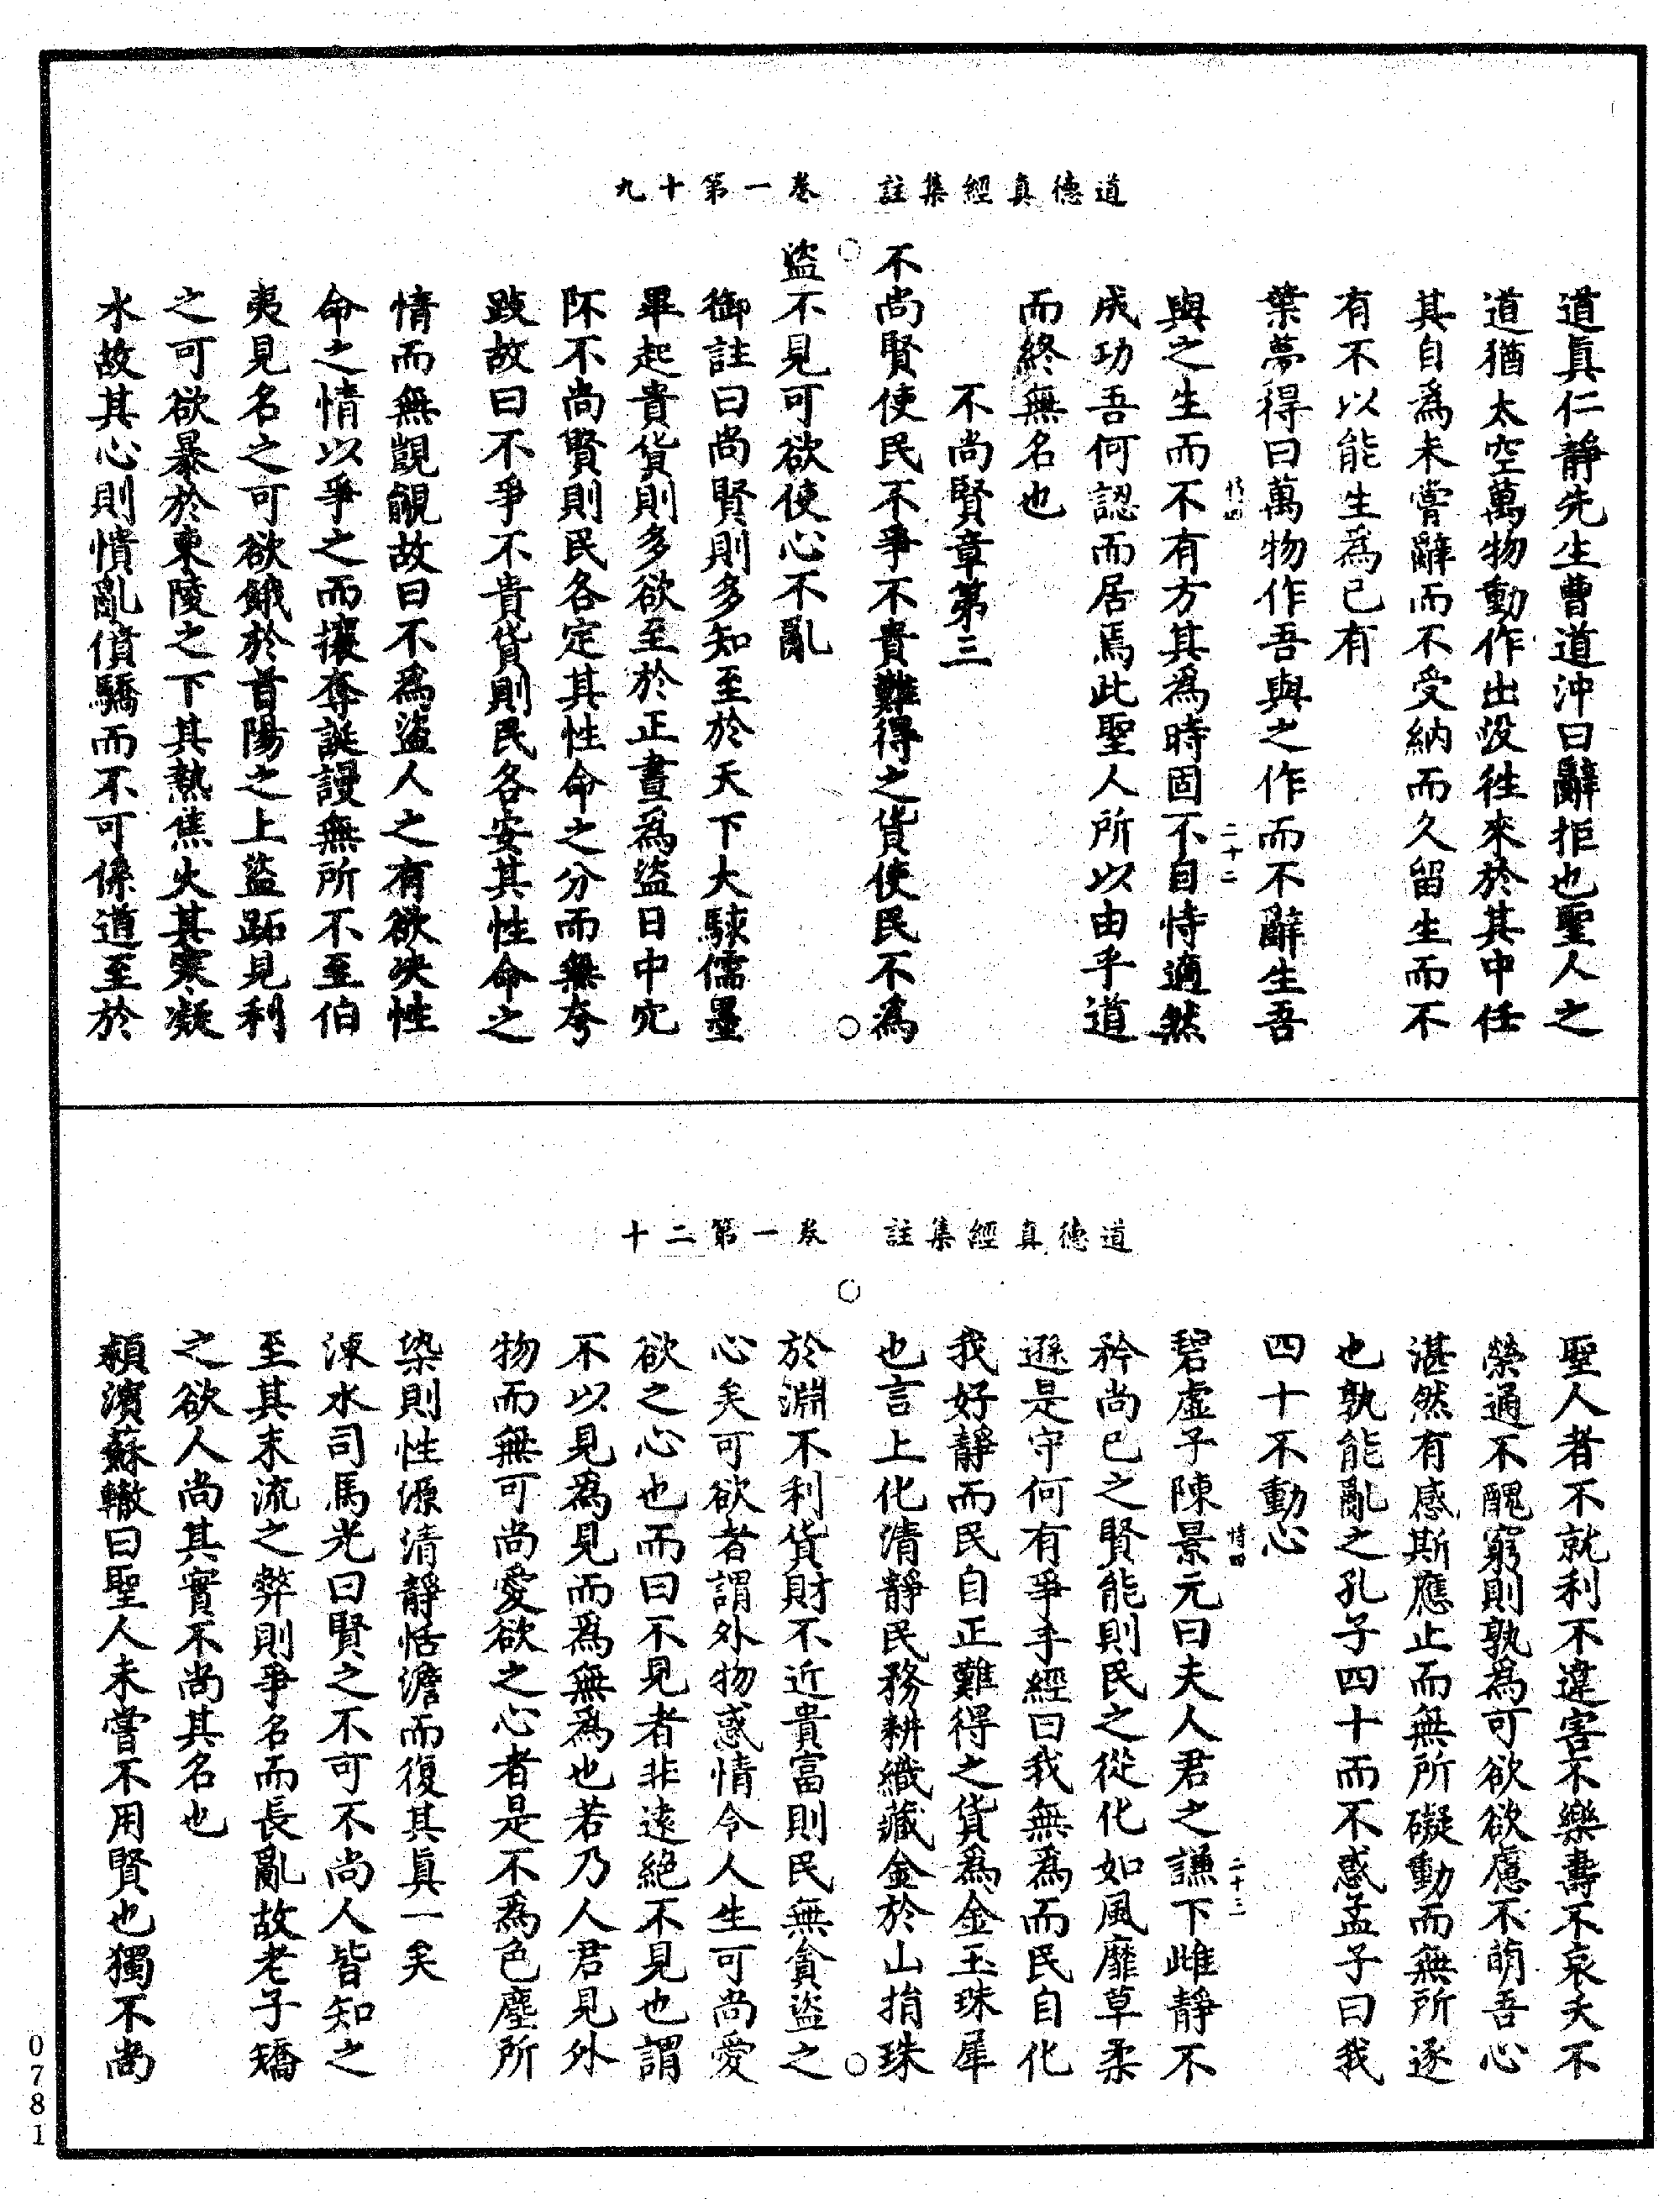 道德真經集註　卷一第十九
道眞仁靜先生曹道沖曰辭拒也聖人之
道猶太空萬物動作出沒徃來於其中任
其自爲未嘗辭而不受納而久留生而不
有不以能生爲已有
葉夢得曰萬物作吾與之作而不辭生吾
二十二
與之生而不有方其爲時固不自恃適然
成功吾何認而居焉此聖人所以由乎道
而終無名也
不尚賢章第三
不尚賢使民不爭不貴難得之貨使民不爲
盜不見可欲使心不亂
御註曰尚賢則多知至於天下大駭儒墨
畢起貴貨則多欲至於正晝爲盜日中穴
阫不尚賢則民各定其性命之分而無夸
跂故曰不爭不貴貨則民各安其性命之
情而無覬覦故曰不爲盜人之有欲决性
命之情以爭之而攘奪誕謾無所不至伯
夷見名之可欲餓於首陽之上盜跖見利
之可欲暴於東陵之下其熱焦火其寒凝
水故其心則憒亂僨驕而不可係道至於
道德真經集註　卷一第二十
聖人者不就利不違害不樂壽不哀夭不
榮通不醜窮則孰爲可欲欲慮不萌吾心
湛然有感斯應止而無所礙動而無所逐
也孰能亂之孔子四十而不惑孟子曰我
四十不動心
二十三
碧虛子陳景元曰夫人君之謙下雌靜不
矜尚已之賢能則民之從化如風靡草柔
遜是守何有爭乎經曰我無爲而民自化
我好靜而民自正難得之貨爲金玉珠犀
也言上化清靜民務耕織藏金於山捐珠
於淵不利貨財不近貴富則民無貪盜之
心矣可欲者謂外物惑情令人生可尚愛
欲之心也而曰不見者非遠絕不見也謂
不以見爲見而爲無爲也若乃人君見外
物而無可尚愛欲之心者是不爲色塵所
染則性源清靜恬澹而復其眞一矣
涑水司馬光曰賢之不可不尚人皆知之
至其末流之弊則爭名而長亂故老子矯
之欲人尚其實不尚其名也
頴濱蘇轍曰聖人未嘗不用賢也獨不尚
0781